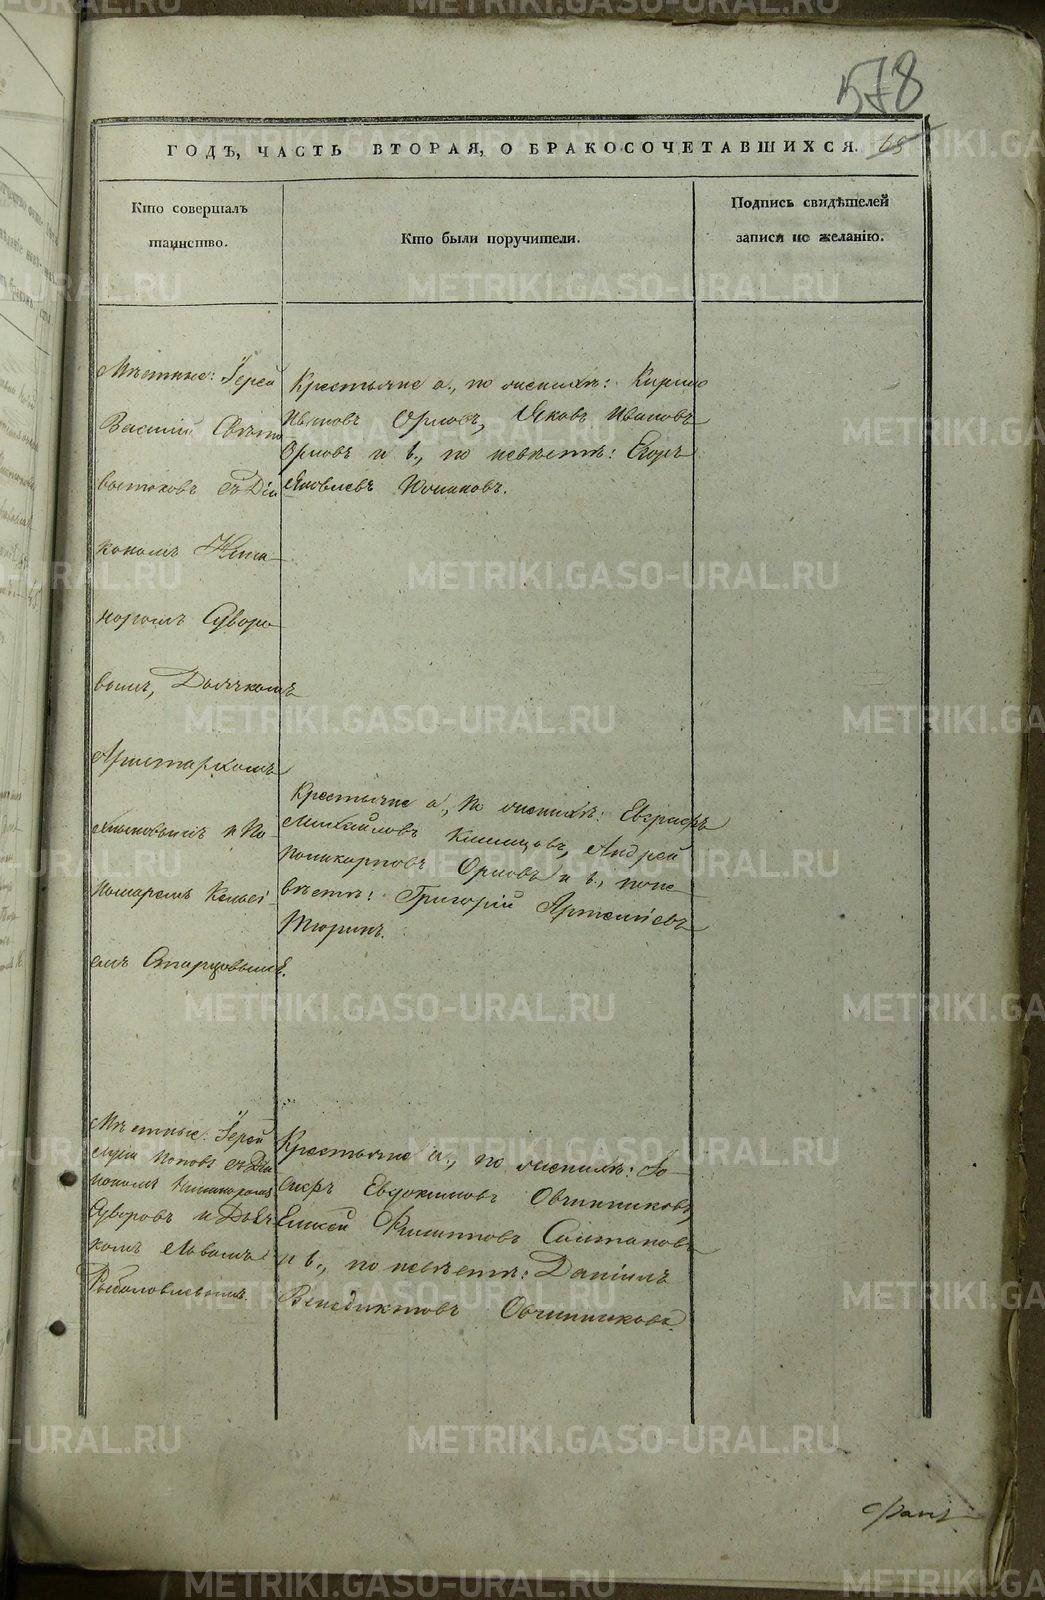 578
65
ГОДЪ, ЧАСТЬ ВТОРАЯ, О БРАКОСОЧЕТАВШИХСЯ.
Кто совершалъ
таинство.
Кто были поручители.
Подпись свидѣтелей
записи по желанію.
Мѣстные: Іерей
Василій Свѣто
востоковъ съ Діа
кономъ Ника
норомъ Суворо
вымъ, Дьячкомъ
Аристархомъ
и По
номаремъ Келсі
емъ Старцовымъ.
Крестьяне а., по женихѣ: Кирило
Ивановъ Орловъ, Яковъ Ивановъ
Орловъ и в., по невѣстѣ: Егоръ
Яковлевъ
Крестьяне а, по женихѣ: Евграфъ
Михайловъ Андрей
Поликарповъ Орловъ и в., по не
вѣстѣ: Григорій Артеміевъ
Тюринъ.
Мѣстные: Іерей
Поповъ съ Діа
кономъ Никаноромъ
Суворовъ и Дьяч
комъ Львомъ
Рыболовлевымъ.
Крестьяне а., по женихѣ: Іо
сифъ Евдокимовъ Овчинниковъ,
Елисей Филиповъ Солтановъ
и в., по невѣстѣ: Даніилъ
Венедиктовъ Овчинниковъ.
METRIKI.GASO-URAL.RU